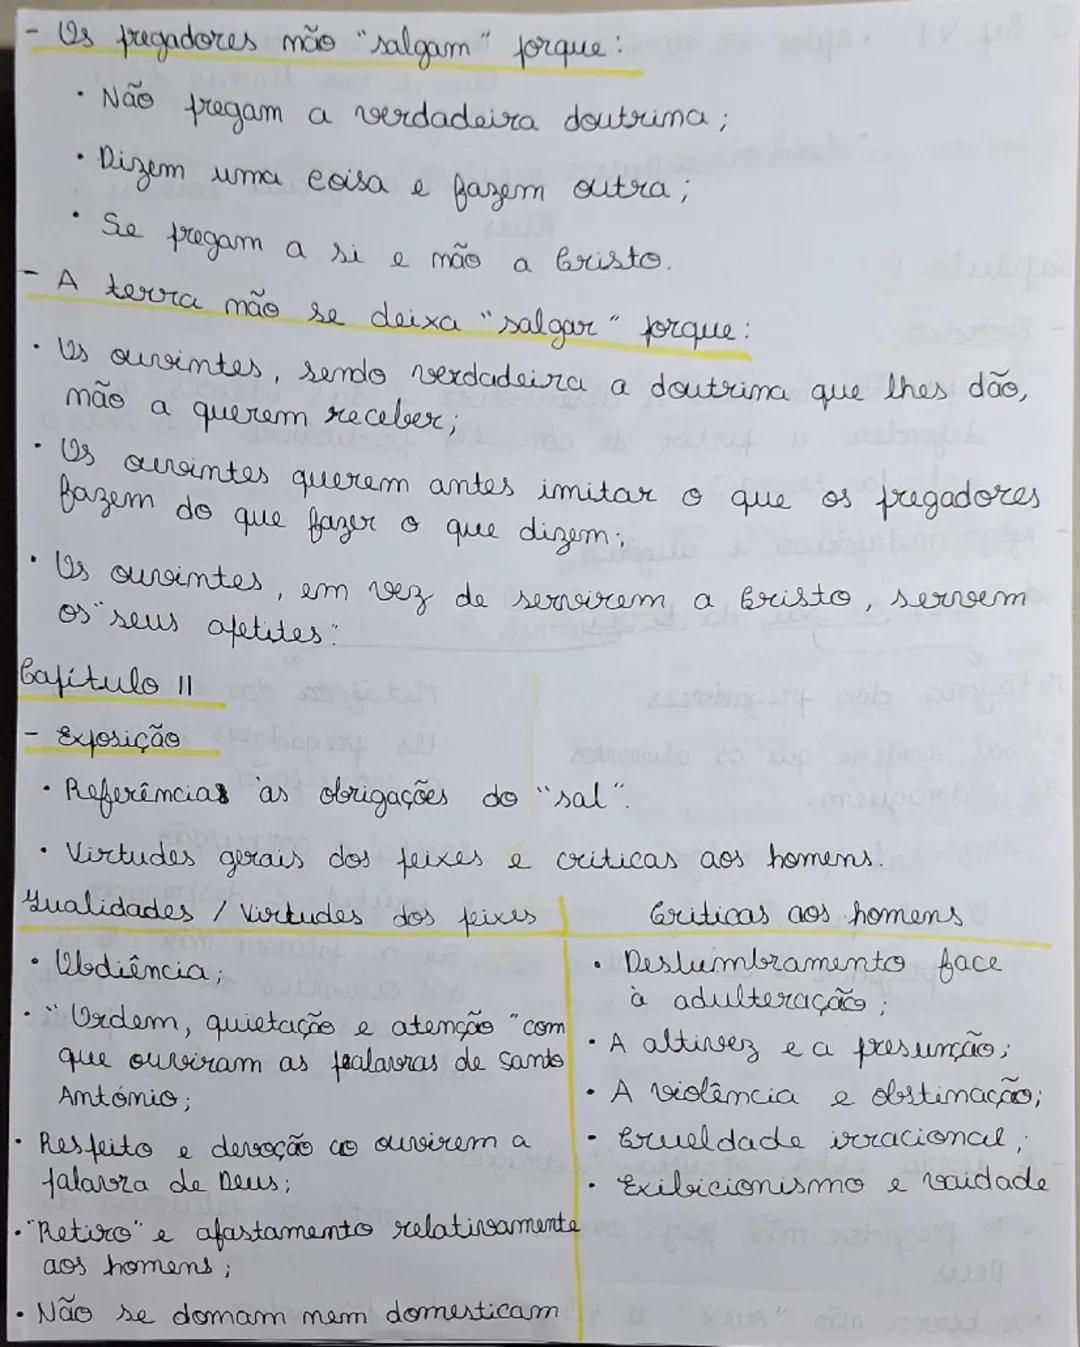 - Os pregadores não "salgam" porque:
• Não pregam a verdadeira doutrina;
• Dizem uma coisa e fazem outra;
• Se pregam a si e não a Cristo.
- A terra não se deixa "salgar" porque:
• Os ouvintes, sendo verdadeira a doutrina que lhes dão,
não a querem receber;
• Os ouvintes querem antes imitar o que os pregadores
fazem do que fazer o que dizem;
• Os ouvintes, em vez de servirem a Cristo, servem
os "seus apetites".
Capítulo II
- Exposição
• Referências às obrigações do "sal".
• Virtudes gerais dos peixes e criticas aos homens.
Qualidades / Virtudes dos peixes
• Obdiência;
• "Ordem, quietação e atenção" com
que ouviram as palavras de Santo
António;
• Respeito e devoção ao ouvirem a
palavra de Deus;
• "Retiro" e afastamento relativamente
aos homens;
• Não se domam nem domesticam
Criticas aos homens
• Deslumbramento face
à adulteração;
• A altivez e a presunção;
• A violência e obstinação;
• Crueldade irracional;
• Exibicionismo e vaidade